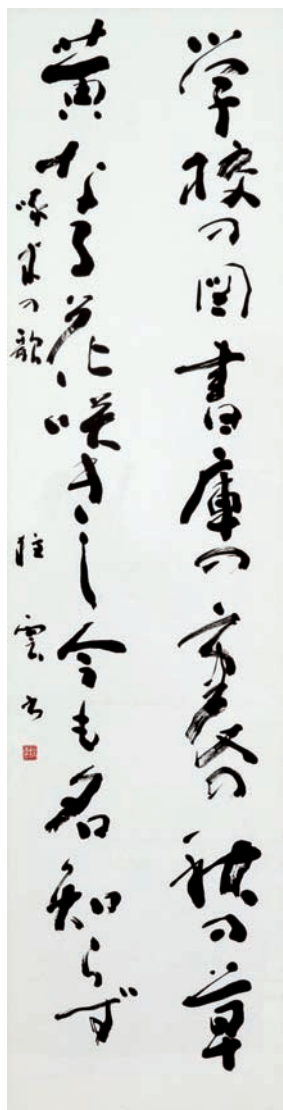 学校の図書庫の裏の秋の草
黄なる花咲きし今も名知らず
啄木の歌
雲書